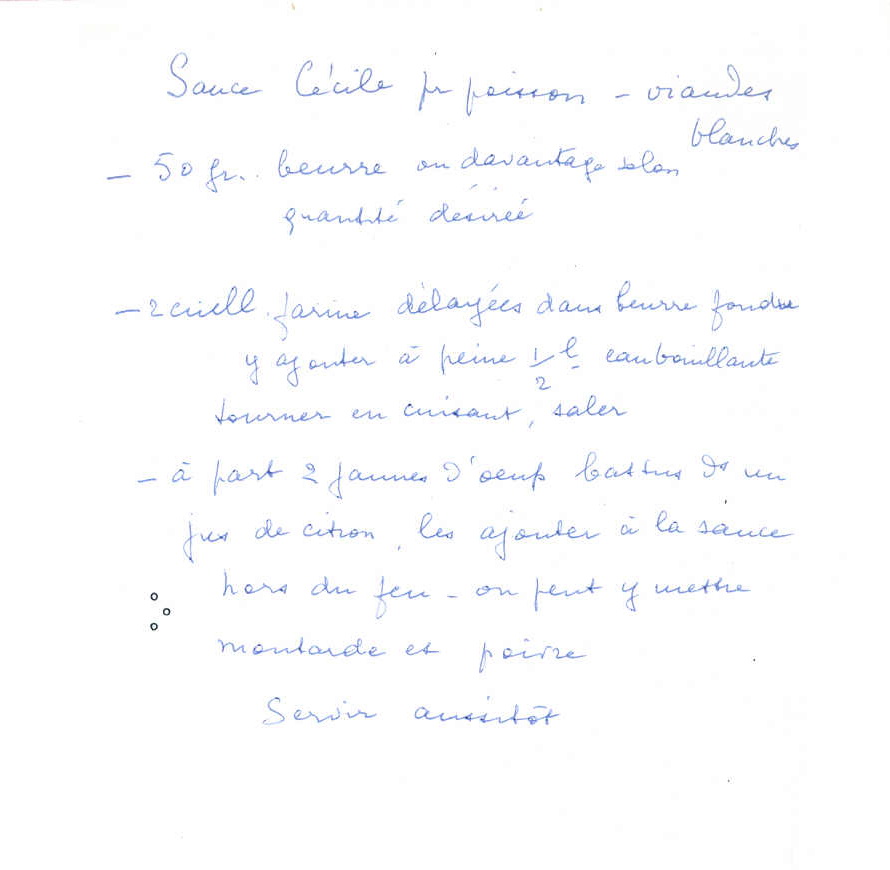 Sauce Cécile pr poisson - viandes
blanches
- 50 gr. beurre ou davantage selon
quantité désirée
- 2 cuell. farine délayées dans beurre fondu
y ajouter à peine 1/2 l eau bouillante
tourner en cuisant, saler
- à part 2 jaunes d'oeufs battus ds un
jus de citron, les ajouter à la sauce
hors du feu - on peut y mettre
moutarde et poivre
Servir aussitôt